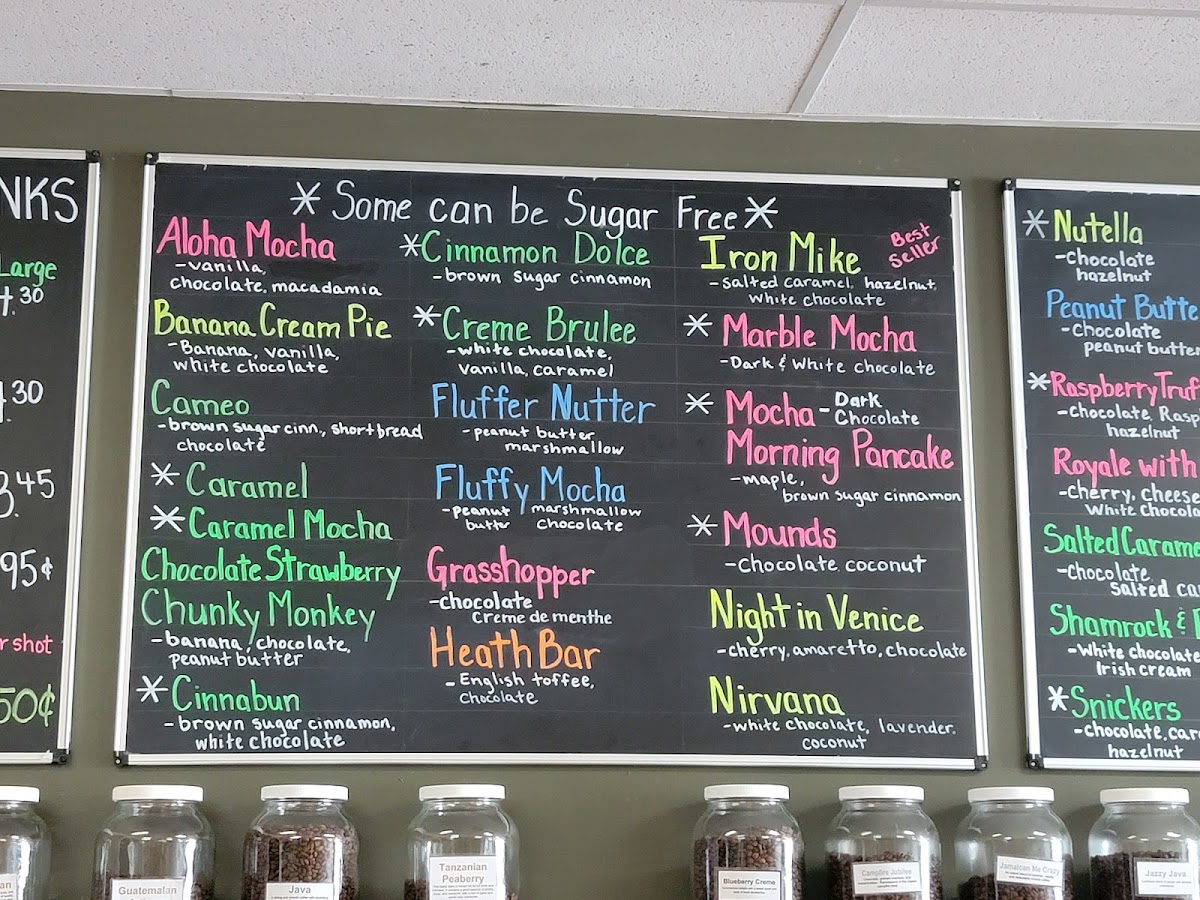 NKS
Large
.30
.30
.45
95¢
shot
50¢
* Some can be Sugar Free *
Aloha Mocha
-vanilla,
chocolate, macadamia
Banana Cream Pie
-Banana, vanilla,
white chocolate
Cameo
-brown sugar cinn., shortbread
chocolate
* Caramel
* Caramel Mocha
Chocolate Strawberry
Chunky Monkey
-banana, chocolate,
peanut butter
* Cinnabun
-brown sugar cinnamon,
white chocolate
* Cinnamon Dolce
-brown sugar cinnamon
* Creme Brulee
-white chocolate,
vanilla, caramel
Fluffer Nutter
-peanut butter,
marshmallow
Fluffy Mocha
-peanut marshmallow
buttr chocolate
Grasshopper
-chocolate
Creme de menthe
Heath Bar
-English toffee,
chocolate
Iron Mike
Best
Seller
-salted caramel, hazelnut,
white chocolate
* Marble Mocha
-Dark & White chocolate
* Mocha - Dark
Chocolate
Morning Pancake
-maple,
brown sugar cinnamon
* Mounds
-chocolate coconut
Night in Venice
-cherry, amaretto, chocolate
Nirvana
-white chocolate, lavender,
coconut
* Nutella
-chocolate
hazelnut
Peanut Butte
-Chocolate
peanut butter
* Raspberry Truf
-chocolate, Rasp
hazelnut
Royale with
-cherry, cheese
White chocola
Salted Carame
-chocolate,
salted ca
Shamrock &
-White chocolate
Irish cream
* Snickers
-chocolate, car
hazelnut
Guatemalan
Java
Tanzanian
Peaberry
Blueberry Creme
Campfire Jubilee
Jamaican Me Crazy
Jazzy Java